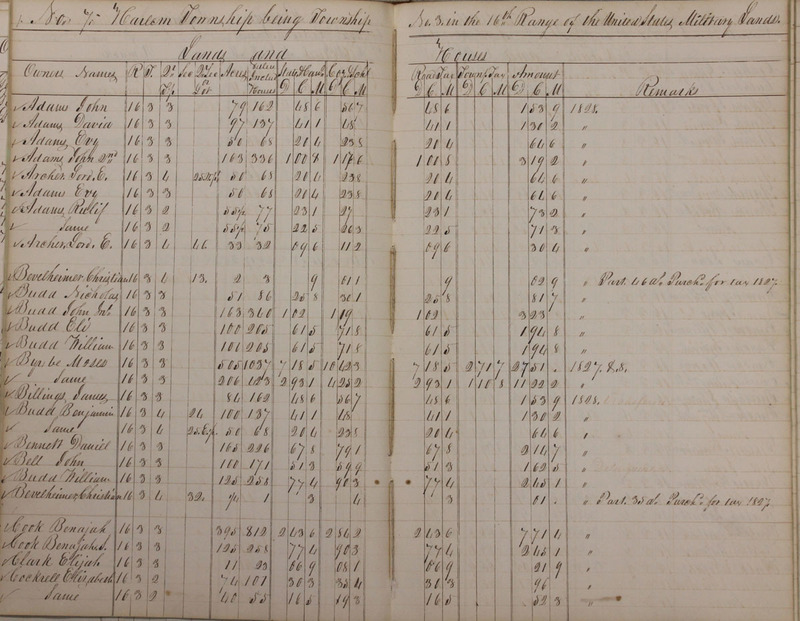 No 75 Harlem Township being Township No. 3 in the 16th Range of the United States Military Lands.
Lands and Houses
Owners Names R T. Qr Sec Lot Acres Value Includ Houses State & Canal Co. & School Road Tax Town Tax Amount Remarks
D C M D C M D C M D C M D C M
Adams John 16 3 3 79 162 48 6 56 7 48 6 1 53 9 1828.
Adams David 16 3 3 97 137 41 1 48 41 1 1 30 2 "
Adams Evy 16 3 3 50 68 20 4 23 8 20 4 64 6 "
Adams John 2nd 16 3 3 163 336 1 00 8 1 17 6 1 00 8 3 19 2 "
Archer Lord. E. 16 3 4 50 68 20 4 23 8 20 4 64 6 "
Adams Evy 16 3 3 50 68 20 4 23 8 20 4 64 6 "
Adams 16 3 2 55½ 77 23 1 27 23 1 73 2 "
Same 16 3 2 55½ 75 22 5 26 3 22 5 71 3 "
Archer Lord. E. 16 3 4 46 33 32 09 6 11 2 09 6 30 4 "
Bevelheimer Christian 16 3 4 13. 2 3 9 01 1 9 02 9 " Part. 46 a. Purchd. for tax 1827.
Budd Nicholas 16 3 3 51 86 25 8 30 1 25 8 81 7 "
Budd John Jnr. 16 3 3 163 340 1 02 1 19 1 02 3 23 "
Budd Eli 16 3 3 100 205 61 5 71 8 61 5 1 94 8 "
Budd William 16 3 3 101 205 61 5 71 8 61 5 1 94 8 "
Byxbe Moses 16 3 3 505 1037 7 18 5 10 42 3 7 18 5 2 71 7 27 51 . 1827. & 8.
Same 16 3 3 206 423 2 93 1 4 25 2 2 93 1 1 10 8 11 22 2 "
Billings James 16 3 3 84 162 48 6 56 7 48 6 1 53 9 1828.
Budd Benjamin 16 3 4 24 100 137 41 1 48 41 1 1 30 2 "
Same 16 3 4 50 68 20 4 23 8 20 4 64 6 "
Bennett Daniel 16 3 3 165 226 67 8 79 1 67 8 2 14 7 "
Bell John 16 3 3 100 171 51 3 59 9 51 3 1 62 5 "
Budd William 16 3 3 125 258 77 4 90 3 77 4 2 45 1 "
Bevelheimer Christian 16 3 4 32. ¾ 1 3 4 3 01 . " Part. 35 a. Purchd. for tax 1827
Cook Benajah 16 3 3 395 812 2 43 6 2 84 2 2 43 6 7 71 4 "
Cook Benajah 16 3 3 125 258 77 4 90 3 77 4 2 45 1 "
Clark Elijah 16 3 3 11 23 06 9 08 1 06 9 21 9 "
Cockrell Elizabeth 16 3 2 74 101 30 3 35 4 30 3 96 "
Same 16 3 2 40 55 16 5 19 3 16 5 52 3 "